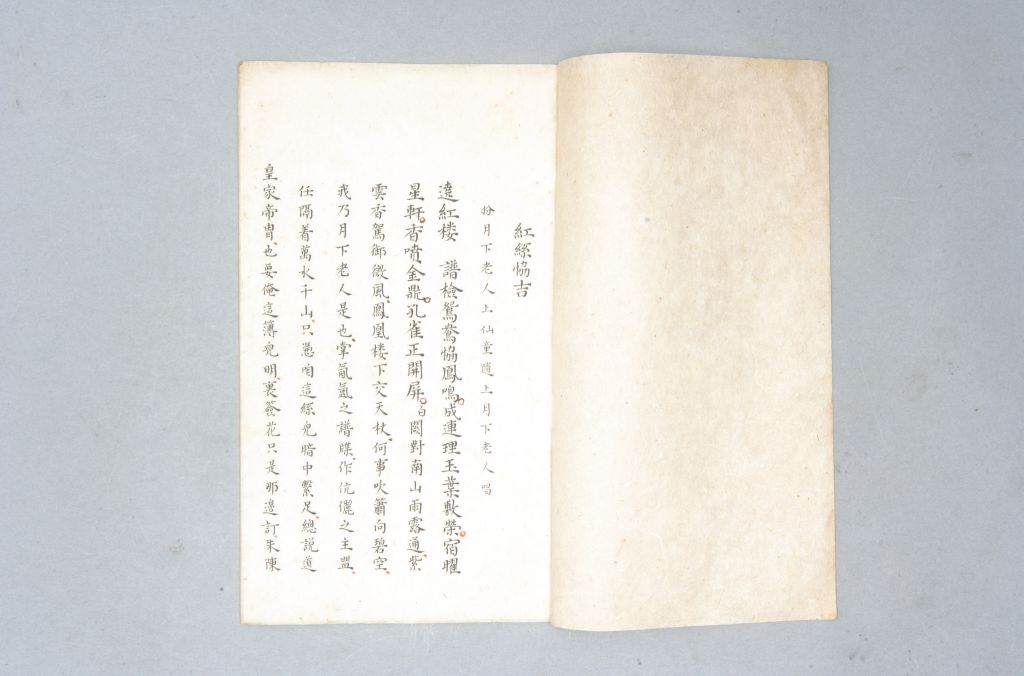 紅絲恊吉
扮月下老人上仙童隨上月下老人唱
遶紅楼　譜檢鴛鴦恊鳳鳴成連理玉葉敷榮宿曜
星軒香噴金鼎孔雀正開屏白闕對南山雨露通紫
雲香駕御微風鳳凰楼下交天杖何事吹簫向碧空
我乃月下老人是也掌氤氲之譜牒作伉儷之主盟
任隔着萬水千山只憑咱這絲兒暗中繫足總説道
皇家帝胄也要俺這簿兒明裏簽花只是那邊訂朱陳